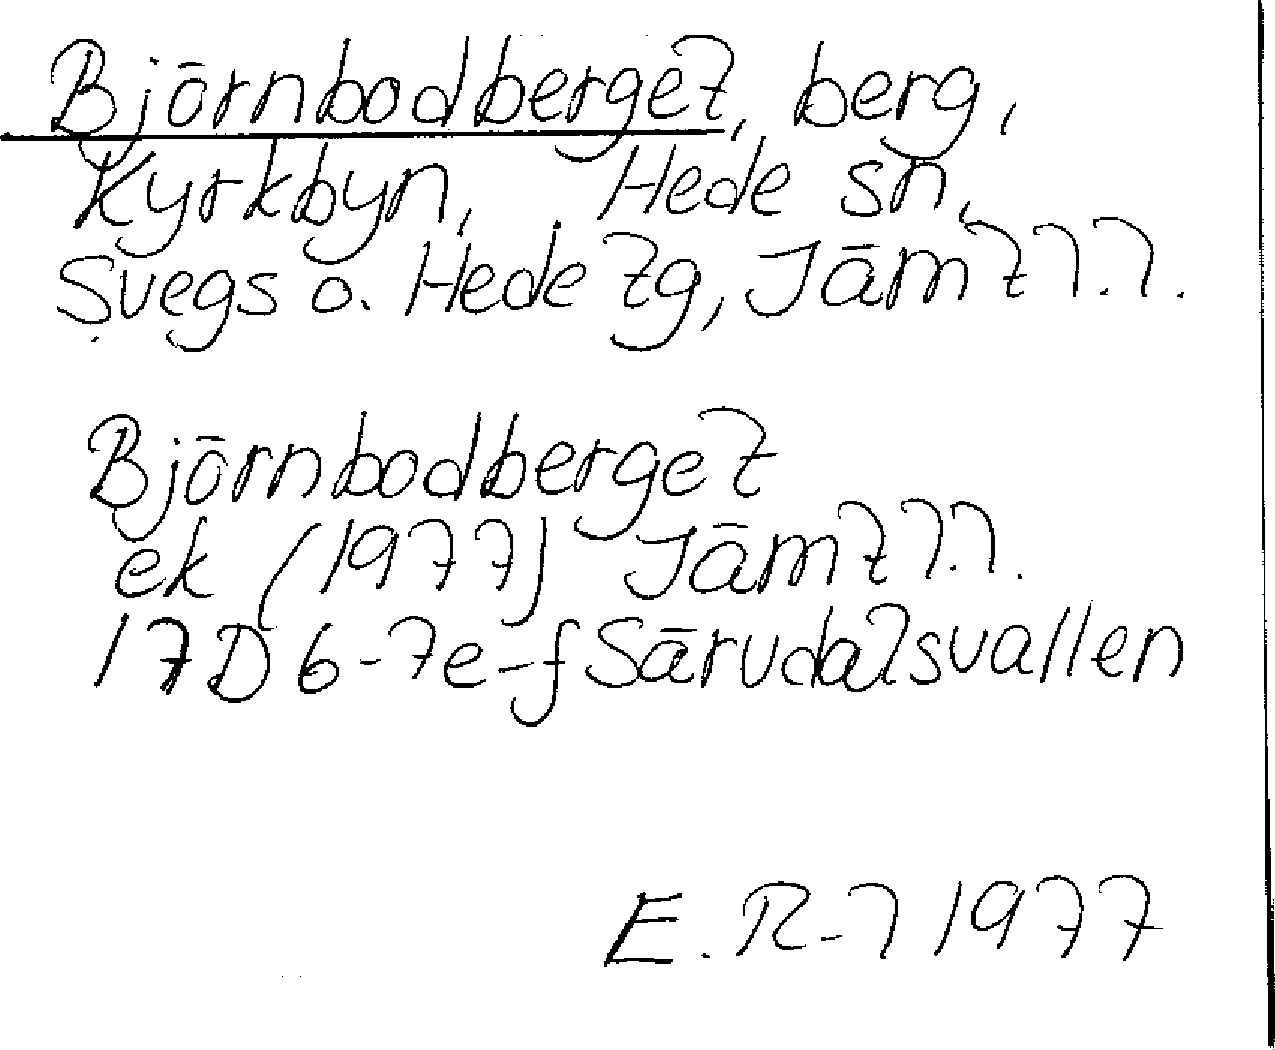 Björnbodberget, berg,
Kyrkbyn, Hede sn,
Svegs o. Hede tg, Jämtl.l.
Björnbodberget
ek (1977) Jämtl.l.
17D 6-7e-f Särvdalsvallen
E. R-l 1977